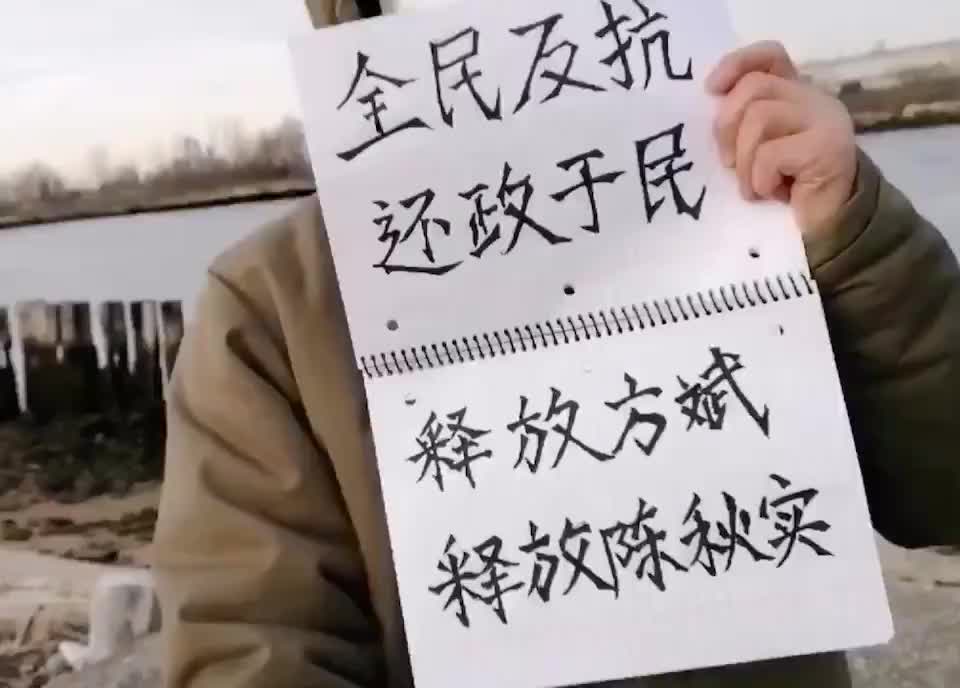 全民反抗
还政于民
释放方斌
释放陈秋实